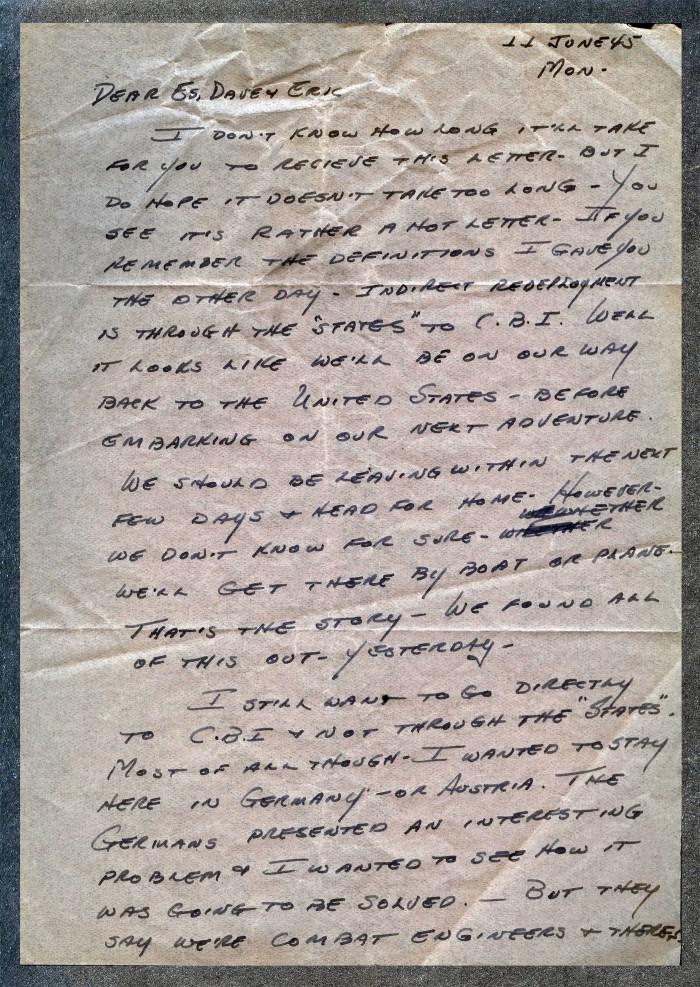 11 JUNE 45
MON.
DEAR ES, DAVE & ERIC
I DON'T KNOW HOW LONG IT'LL TAKE
FOR YOU TO RECIEVE THIS LETTER - BUT I
DO HOPE IT DOESN'T TAKE TOO LONG - YOU
SEE IT'S RATHER A HOT LETTER - IF YOU
REMEMBER THE DEFINITIONS I GAVE YOU
THE OTHER DAY - INDIRECT REDEPLOYMENT
IS THROUGH THE "STATES" TO C.B.I. WELL
IT LOOKS LIKE WE'LL BE ON OUR WAY
BACK TO THE UNITED STATES - BEFORE
EMBARKING ON OUR NEXT ADVENTURE.
WE SHOULD BE LEAVING WITHIN THE NEXT
FEW DAYS & HEAD FOR HOME. HOWEVER-
WE DON'T KNOW FOR SURE - WHETHER
WE'LL GET THERE BY BOAT OR PLANE.
THAT'S THE STORY - WE FOUND ALL
OF THIS OUT - YESTERDAY -
I STILL WANT TO GO DIRECTLY
TO C.B.I & NOT THROUGH THE "STATES".
MOST OF ALL THOUGH - I WANTED TO STAY
HERE IN GERMANY - OR AUSTRIA. THE
GERMANS PRESENTED AN INTERESTING
PROBLEM & I WANTED TO SEE HOW IT
WAS GOING TO BE SOLVED. - BUT THEY
SAY WE'RE COMBAT ENGINEERS & THERE'S